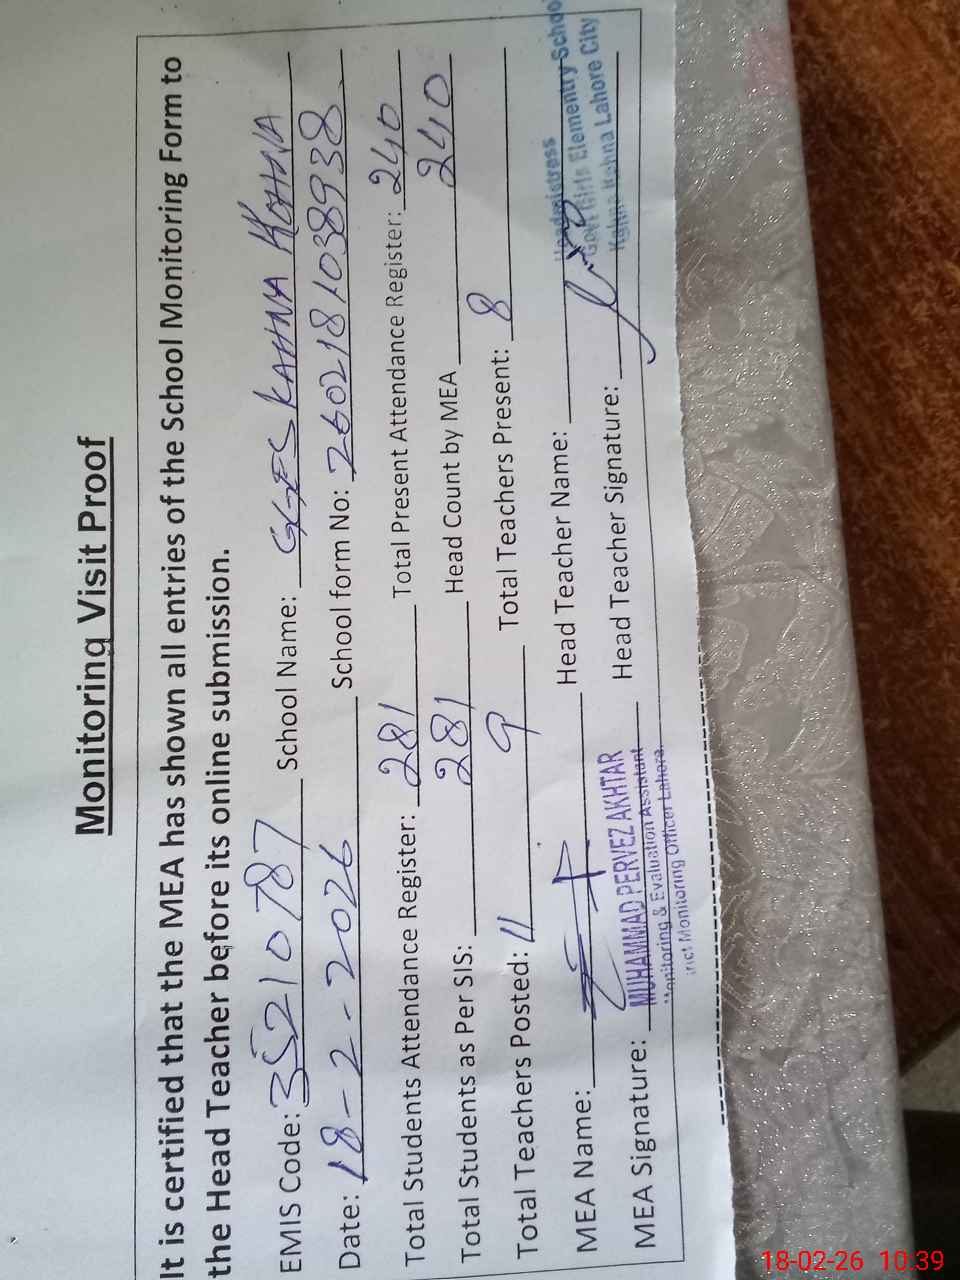 Monitoring Visit Proof
It is certified that the MEA has shown all entries of the School Monitoring Form to
the Head Teacher before its online submission.
EMIS Code: 35210787 School Name: GGES KAHNA KOHNA
Date: 18-2-2026 School form No: 2602181038938
Total Students Attendance Register: 281 Total Present Attendance Register: 240
Total Students as Per SIS: 281 Head Count by MEA 240
Total Teachers Posted: 11 9 Total Teachers Present: 8
MEA Name: Head Teacher Name:
MEA Signature: Head Teacher Signature:
MUHAMMAD PERVEZ AKHTAR
Monitoring & Evaluation Assistant
rict Monitoring Officer Lahore.
Headmistress
Govt Girls Elementry School
Kahna Kohna Lahore City
18-02-26 10.39